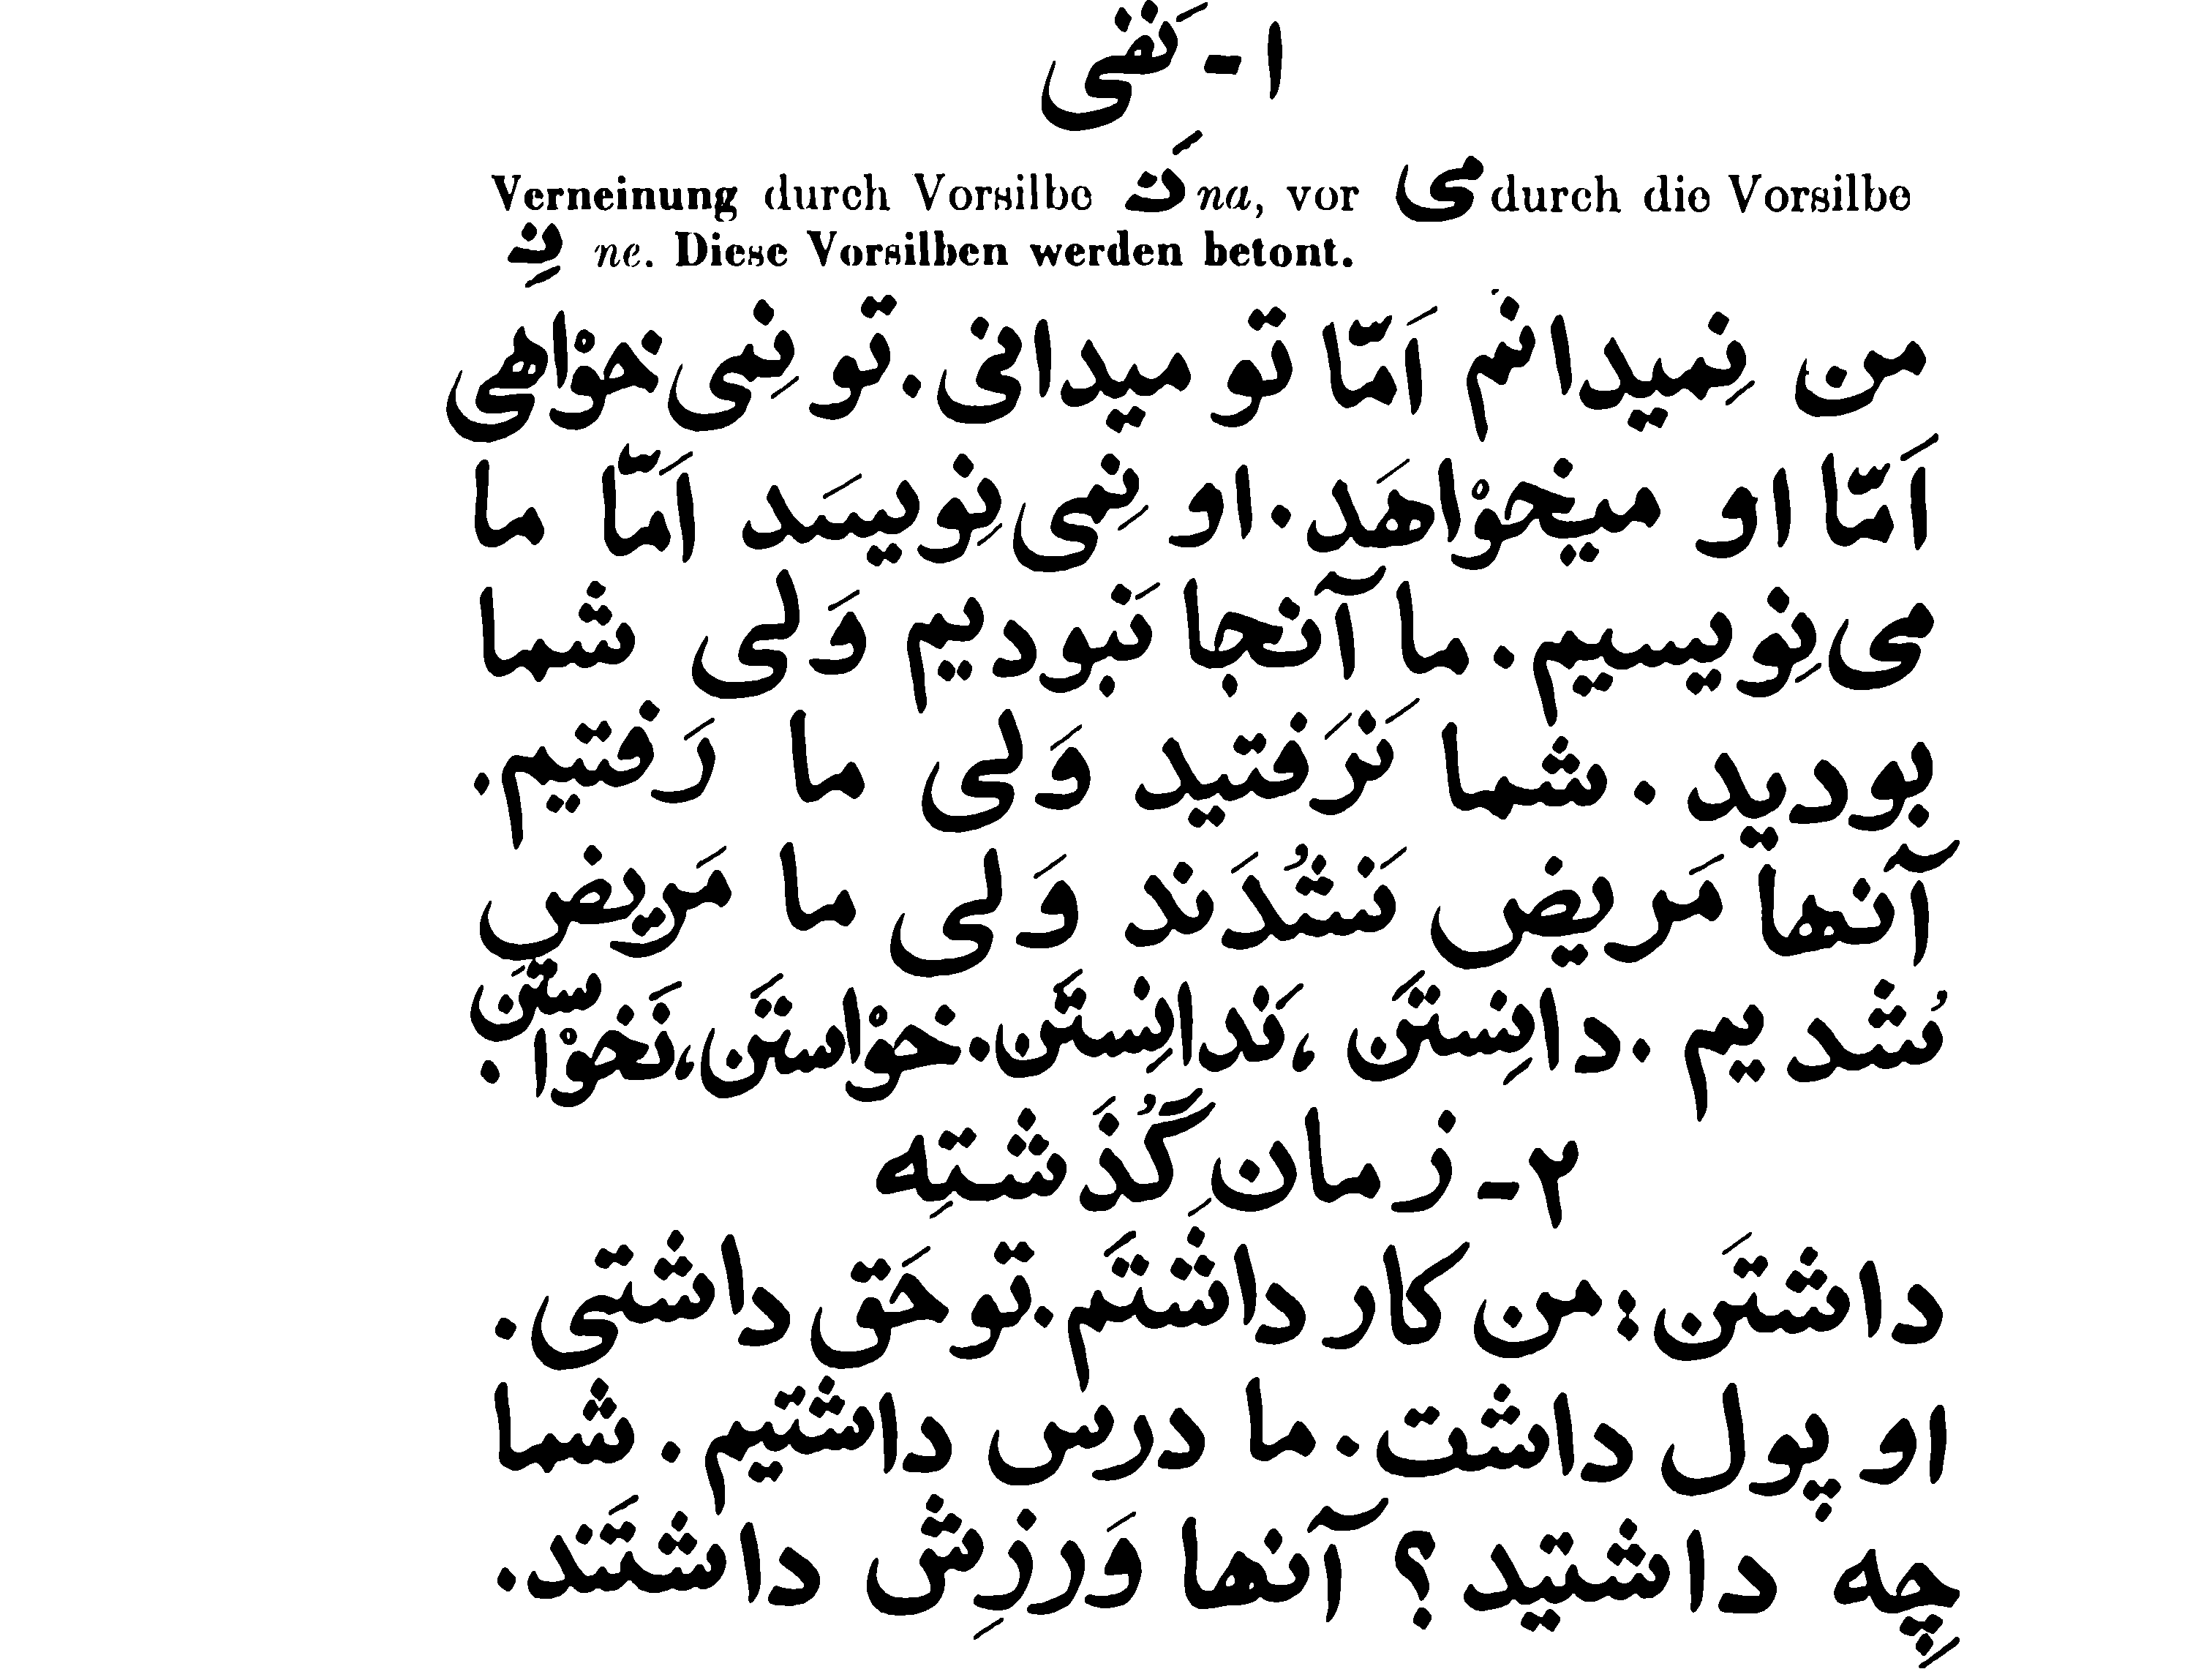 ۱ - نَفی
Verneinung durch Vorsilbe نَ na, vor می durch die Vorsilbe
نِ ne. Diese Vorsilben werden betont.
من نِمیدانم اَمّا تو میدانی . تو نِمی خوْاهی
اَمّا او میخوْاهَد . او نِمی نِویسَد اَمّا ما
می نِویسیم . ما آنجا نَبودیم وَلی شما
بودید . شما نَرَفتید وَلی ما رَفتیم .
آنها مَریض نَشُدَند وَلی ما مَریض
شُدیم . دانِستَن ، نَدانِستَن . خوْاستَن ، نَخوْاستَن .
۲ - زمانِ گُذَشتِه
داشتَن : من کار داشتَم . تو حَق داشتی .
او پول داشت . ما درس داشتیم . شما
چِه داشتید ؟ آنها وَرزِش داشتَند .